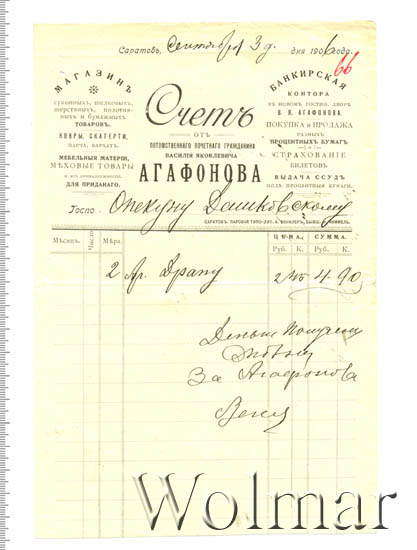 Саратовъ, Сентября 3 д. дня 1906 года.
66
МАГАЗИНЪ
суконныхъ, шелковыхъ,
шерстяныхъ, полотня-
ныхъ и бумажныхъ
ТОВАРОВЪ.
КОВРЫ, СКАТЕРТИ,
ПАРЧА, БАРХАТЪ,
МЕБЕЛЬНЫЯ МАТЕРІИ,
МѢХОВЫЕ ТОВАРЫ
и всѣ принадлежности
ДЛЯ ПРИДАНАГО.
Счетъ
ОТЪ
ПОТОМСТВЕННАГО ПОЧЕТНАГО ГРАЖДАНИНА
ВАСИЛІЯ ЯКОВЛЕВИЧА
АГАФОНОВА
БАНКИРСКАЯ
КОНТОРА
ВЪ НОВОМЪ ГОСТИН. ДВОРѢ
В. Я. АГАФОНОВА.
ПОКУПКА и ПРОДАЖА
РАЗНЫХЪ
ПРОЦЕНТНЫХЪ БУМАГЪ
СТРАХОВАНІЕ
БИЛЕТОВЪ
ВЫДАЧА ССУДЪ
ПОДЪ ПРОЦЕНТНЫЯ БУМАГИ.
Госпо Опекуну
САРАТОВЪ. ПАРОВАЯ ТИПО-ЛИТ.
Мѣсяцъ. Число Мѣра. ЦѢНА. СУММА.
Руб. К. Руб. К.
2 Ар. Драпу 2 45 4 90
Деньги Получены
За Агафонова
Wolmar